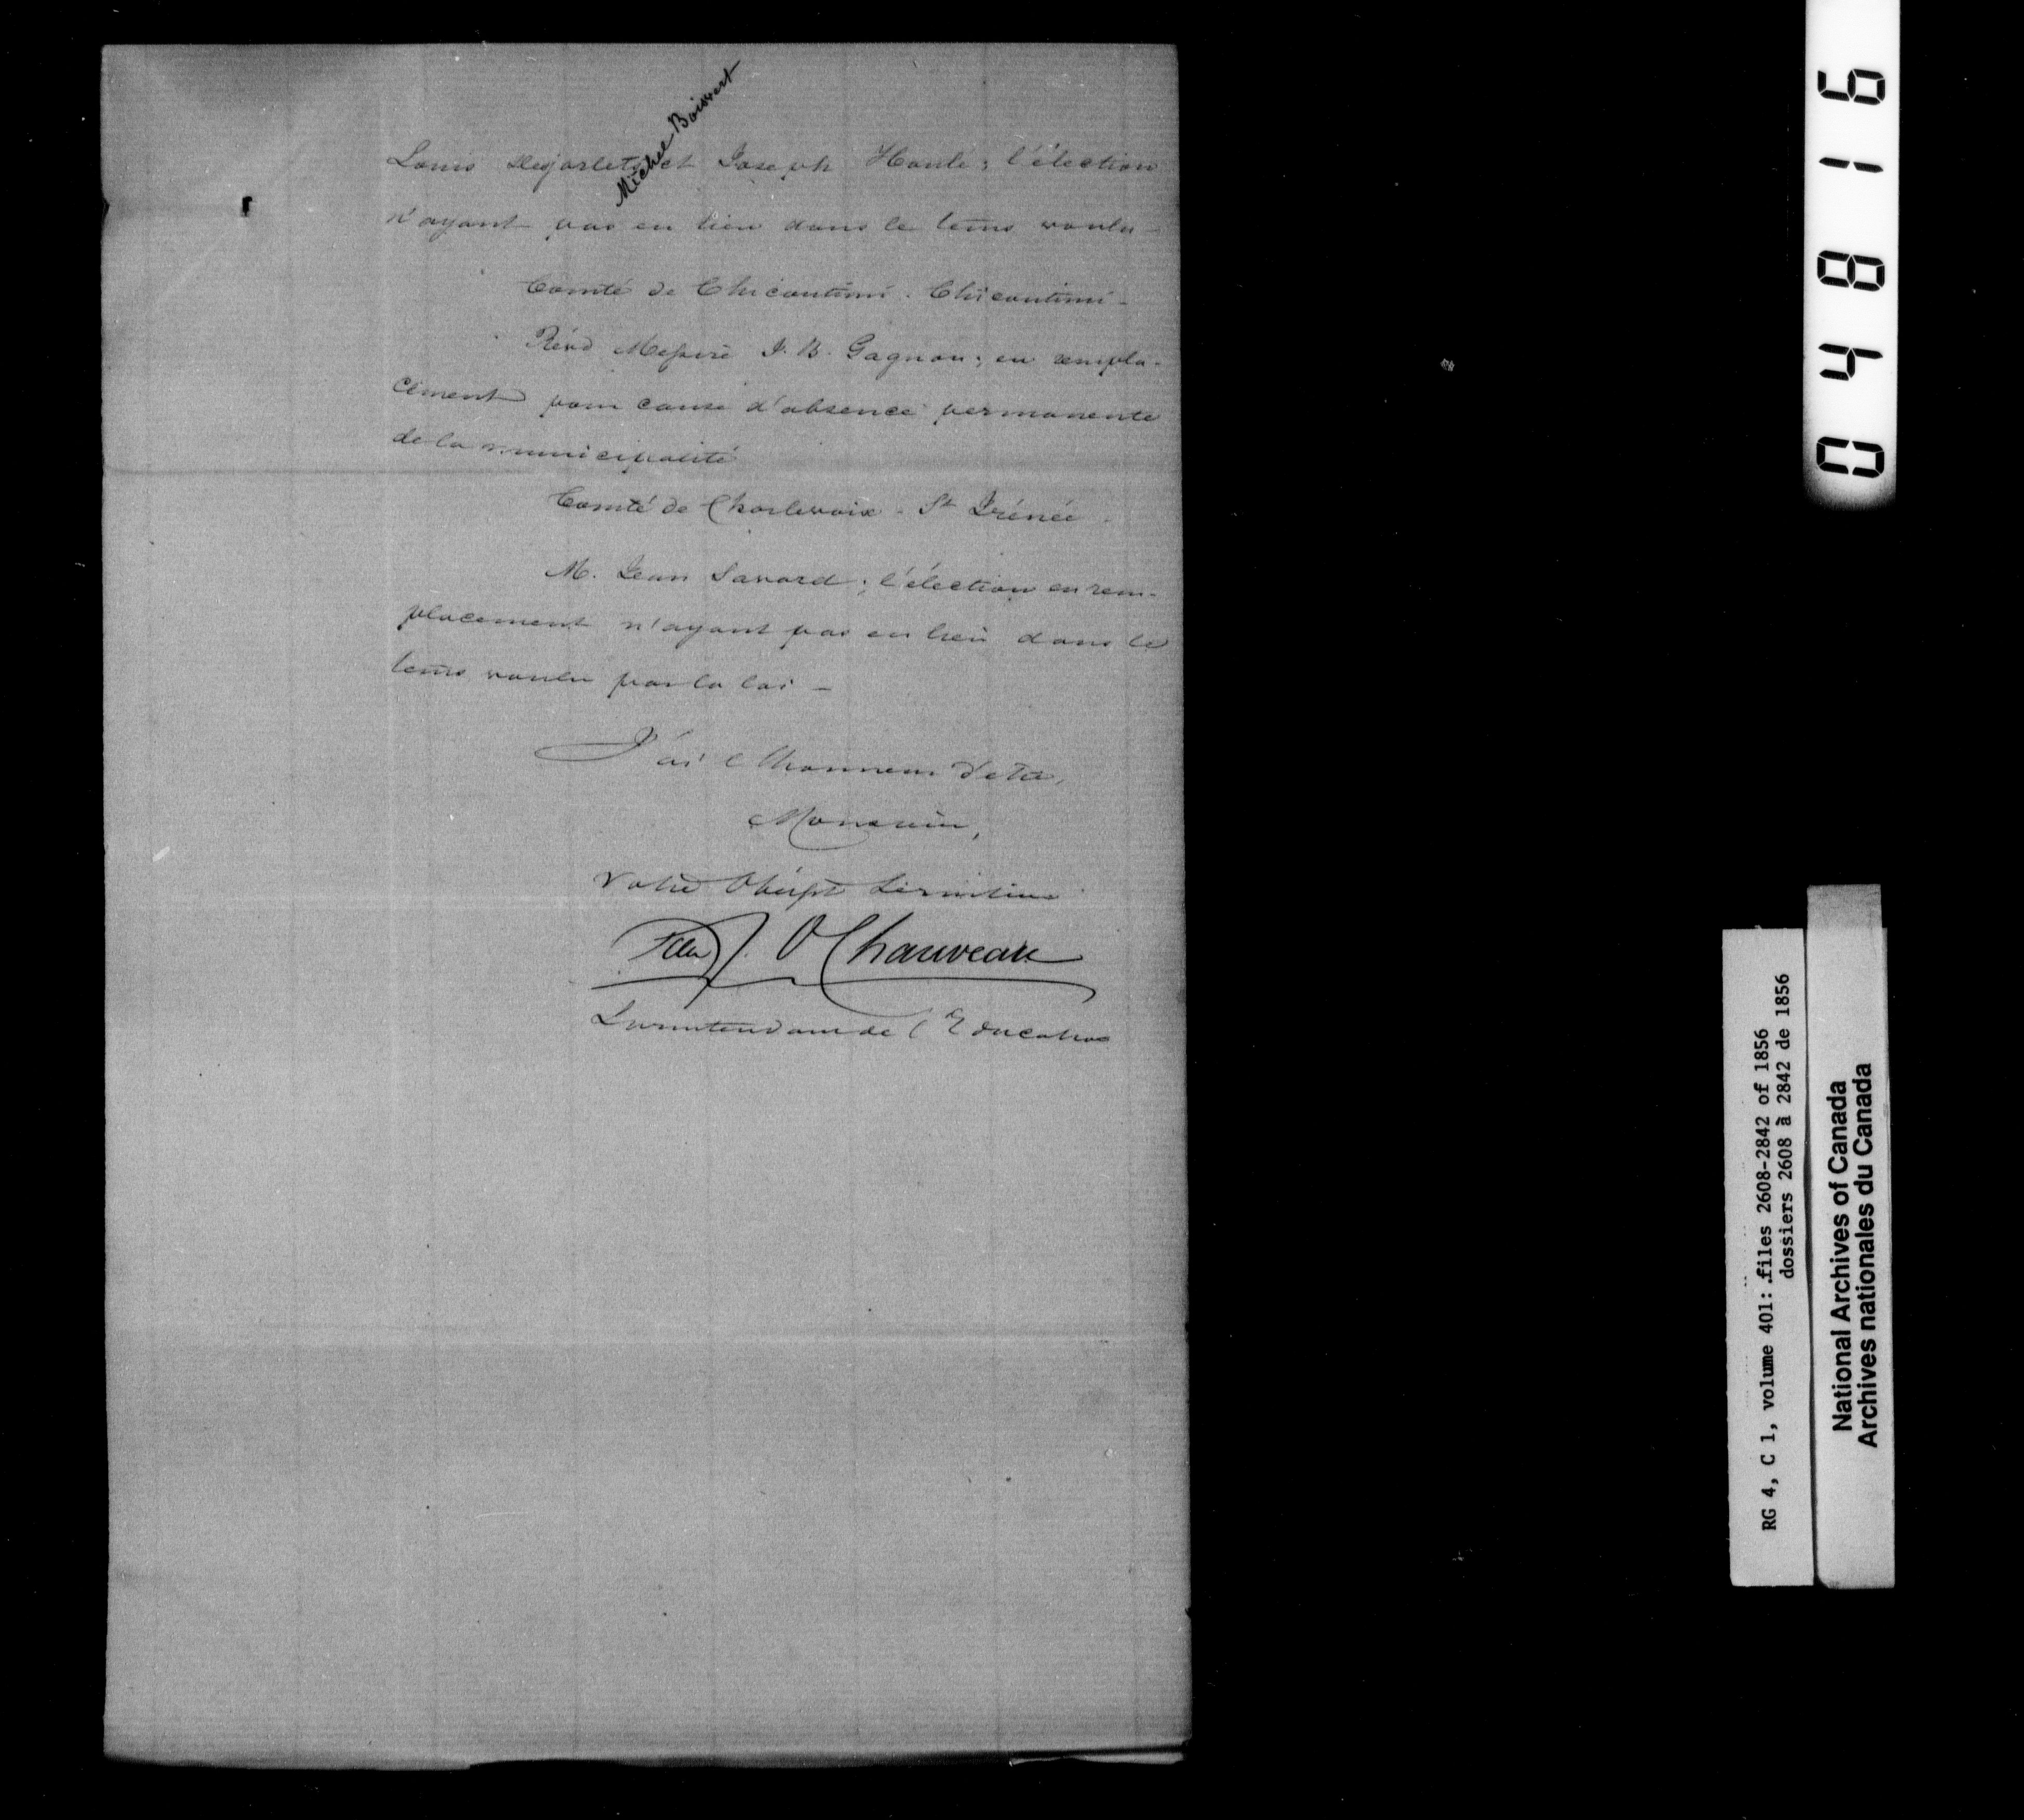 Michel Boisvert
Louis Desjarlets et Joseph Houle; l'élection
n'ayant pas eu lieu dans le tems voulu -
Comté de Chicoutimi. Chicoutimi -
Révd Messire J. B. Gagnon; en rempla-
cement pour cause d'absence permanente
de la municipalité
Comté de Charlevoix - St Irénée -
M. Jean Savard; l'élection en rem-
placement n'ayant pas eu lieu dans le
tems voulu par la loi -
J'ai l'honneur d'etre,
Monsieur,
Votre Obéisst Serviteur
Pierre J. O Chauveau
Surintendant de l'Education
04816
RG 4, C 1, volume 401: files 2608-2842 of 1856
dossiers 2608 à 2842 de 1856
National Archives of Canada
Archives nationales du Canada